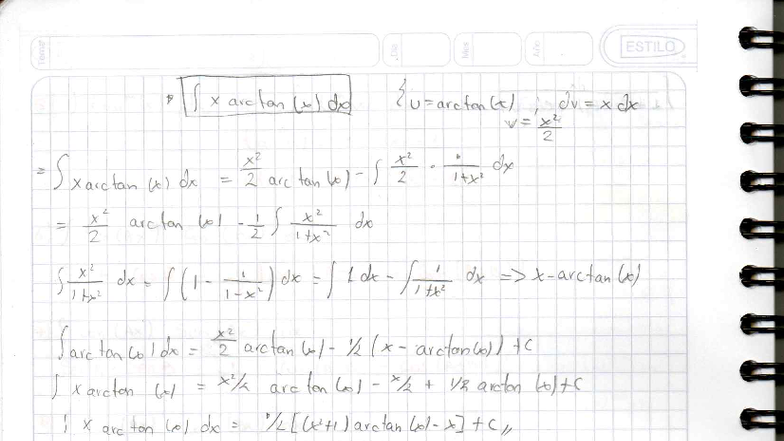 Tema: Día Mes Año ESTILO
∫ x arctan (x) dx { u = arctan (x) ; dv = x dx
v = x²/2
= ∫ x arctan (x) dx = x²/2 arc tan (x) - ∫ x²/2 · 1/1+x² dx
= x²/2 arc tan (x) - 1/2 ∫ x²/1+x² dx
∫ x²/1+x² dx = ∫ (1 - 1/1-x²) dx = ∫ 1 dx - ∫ 1/1+x² dx => x - arctan (x)
∫ arc tan (x) dx = x²/2 arctan (x) - 1/2 (x - arctan (x)) + C
∫ x arctan (x) = x²/2 arc tan (x) - x/2 + 1/2 arctan (x) + C
∫ x arc tan (x) dx = 1/2 [(x²+1) arctan (x) - x] + C,,